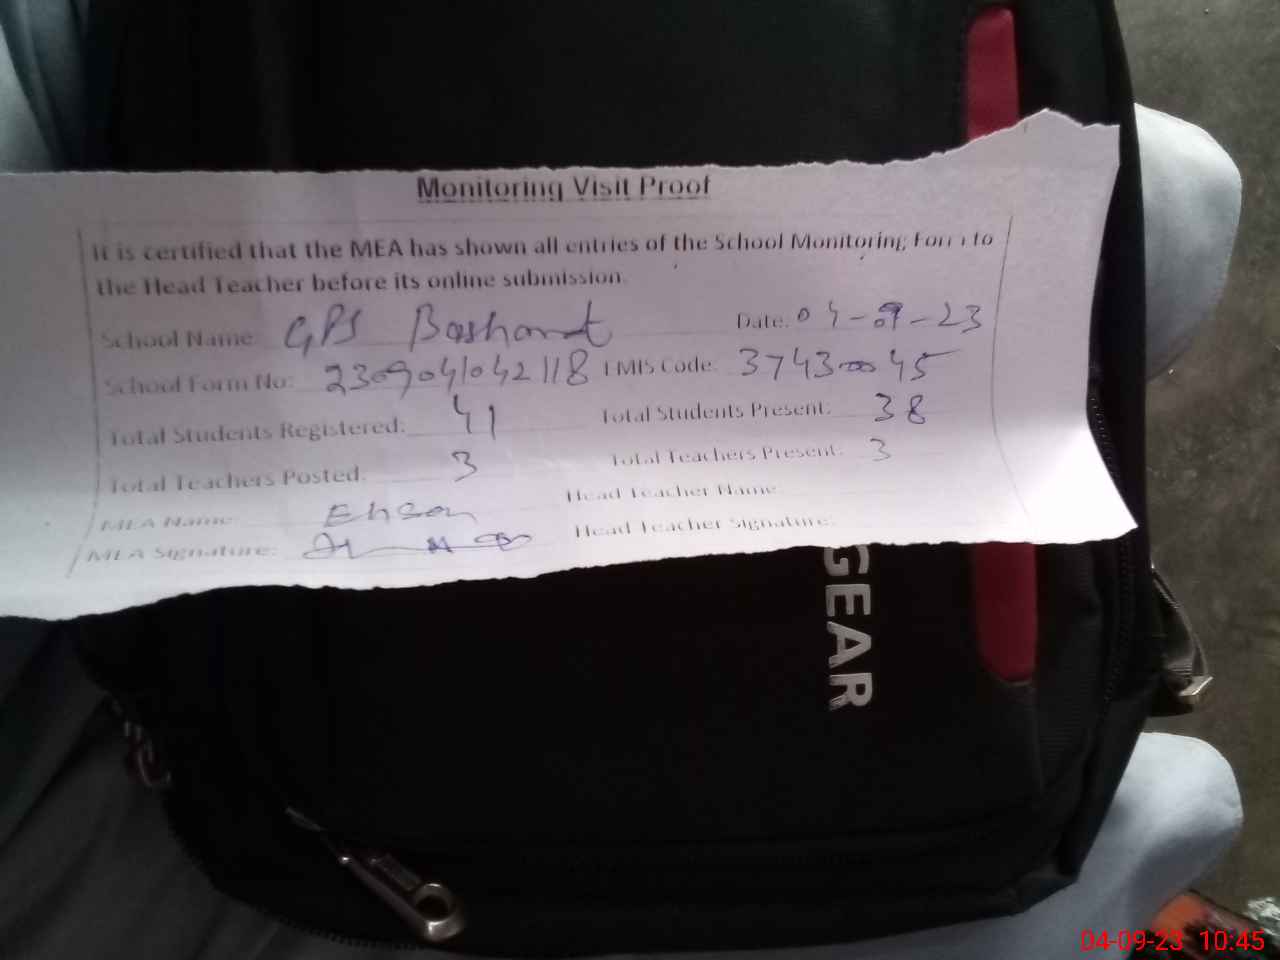 Monitoring Visit Proof
It is certified that the MEA has shown all entries of the School Monitoring Form to
the Head Teacher before its online submission.
School Name: GPS Basharat Date: 04-09-23
School Form No: 2309041042118 EMIS Code: 37430045
Total Students Registered: 41 Total Students Present: 38
Total Teachers Posted: 3 Total Teachers Present: 3
MEA Name: Ehsan Head Teacher Name
MEA Signature: Head Teacher Signature:
GEAR
04-09-23 10:45